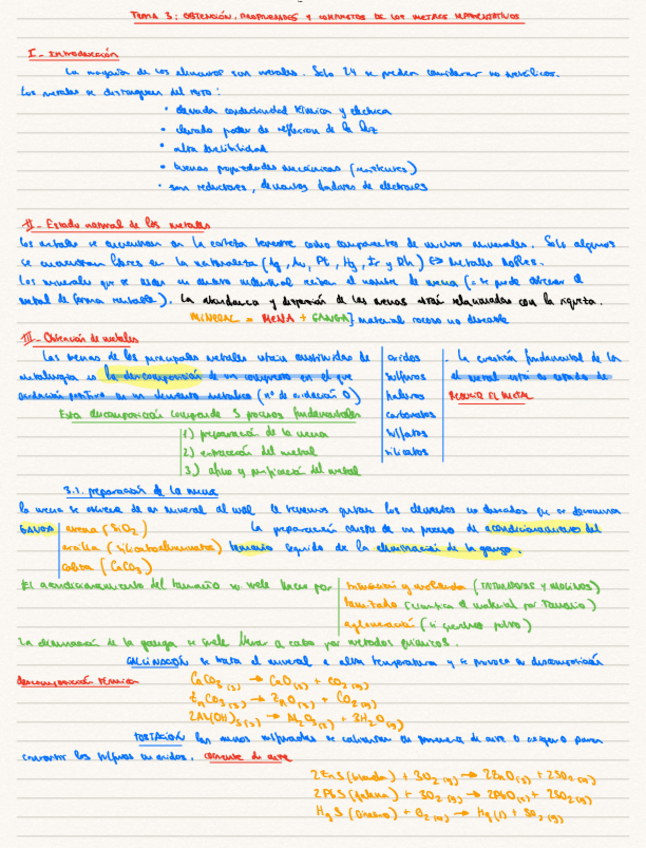 TEMA 3: OBTENCIÓN, PROPIEDADES Y COMPUESTOS DE LOS METALES REPRESENTATIVOS
I - Introducción
La mayoría de los elementos son metales. Solo 24 se pueden considerar no metálicos.
Los metales se distinguen del resto:
• elevada conductividad térmica y eléctrica
• elevado poder de reflexión de la luz
• alta ductibilidad
• buenas propiedades mecánicas (resistentes)
• son reductores, dadores de electrones
II - Estado natural de los metales
Los metales se encuentran en la corteza terrestre como componentes de muchos minerales. Solo algunos
se encuentran libres en la naturaleza (Ag, Au, Pt, Hg, Ir y Rh) metales nobles.
Los minerales que se usan en industrial reciben el nombre de mena (= se puede obtener el
metal de forma rentable). La abundancia y dispersión de las menas están relacionadas con la riqueza.
MINERAL = MENA + GANGA} material rocoso no deseable
III - Obtención de metales
Las menas de los principales metales están constituidas de
óxidos
sulfuros
haluros
carbonatos
sulfatos
silicatos
- La cuestión fundamental de la
metalurgia es la descomposición de un compuesto en el que
el metal está en estado de
oxidación positivo en un elemento metálico (nº de oxidación 0)
REDUCIR EL METAL
Esta descomposición comprende 3 procesos fundamentales
1) preparación de la mena
2) extracción del metal
3) afino y purificación del metal
3.1. preparación de la mena
la mena se obtiene de un mineral al cual le tenemos quitar los elementos no deseados que se denomina
GANGA
arena (SiO2)
arcilla (silicatoaluminatos)
caliza (CaCO3)
La preparación consta de un proceso de acondicionamiento del
tamaño seguido de la eliminación de la ganga.
El acondicionamiento del tamaño se suele hacer por
trituración y molienda (TRITURADORAS Y MOLINOS)
tamizado (cuantifica el material por tamaño)
aglomeración (si queremos polvo)
La eliminación de la ganga se suele llevar a cabo por métodos químicos.
CALCINACIÓN se trata el mineral a alta temperatura y se provoca su descomposición
descomposición térmica
CaCO3 (s) → CaO (s) + CO2 (g)
ZnCO3 (s) → ZnO (s) + CO2 (g)
2Al(OH)3 (s) → Al2O3 (s) + 3H2O (g)
TOSTACIÓN las menas sulfuradas se calientan en presencia de aire u oxígeno para
convertir los sulfuros en óxidos. corriente de aire
2ZnS (blenda) + 3O2 (g) → 2ZnO (s) + 2SO2 (g)
2PbS (galena) + 3O2 (g) → 2PbO (s) + 2SO2 (g)
HgS (cinabrio) + O2 (g) → Hg (l) + SO2 (g)